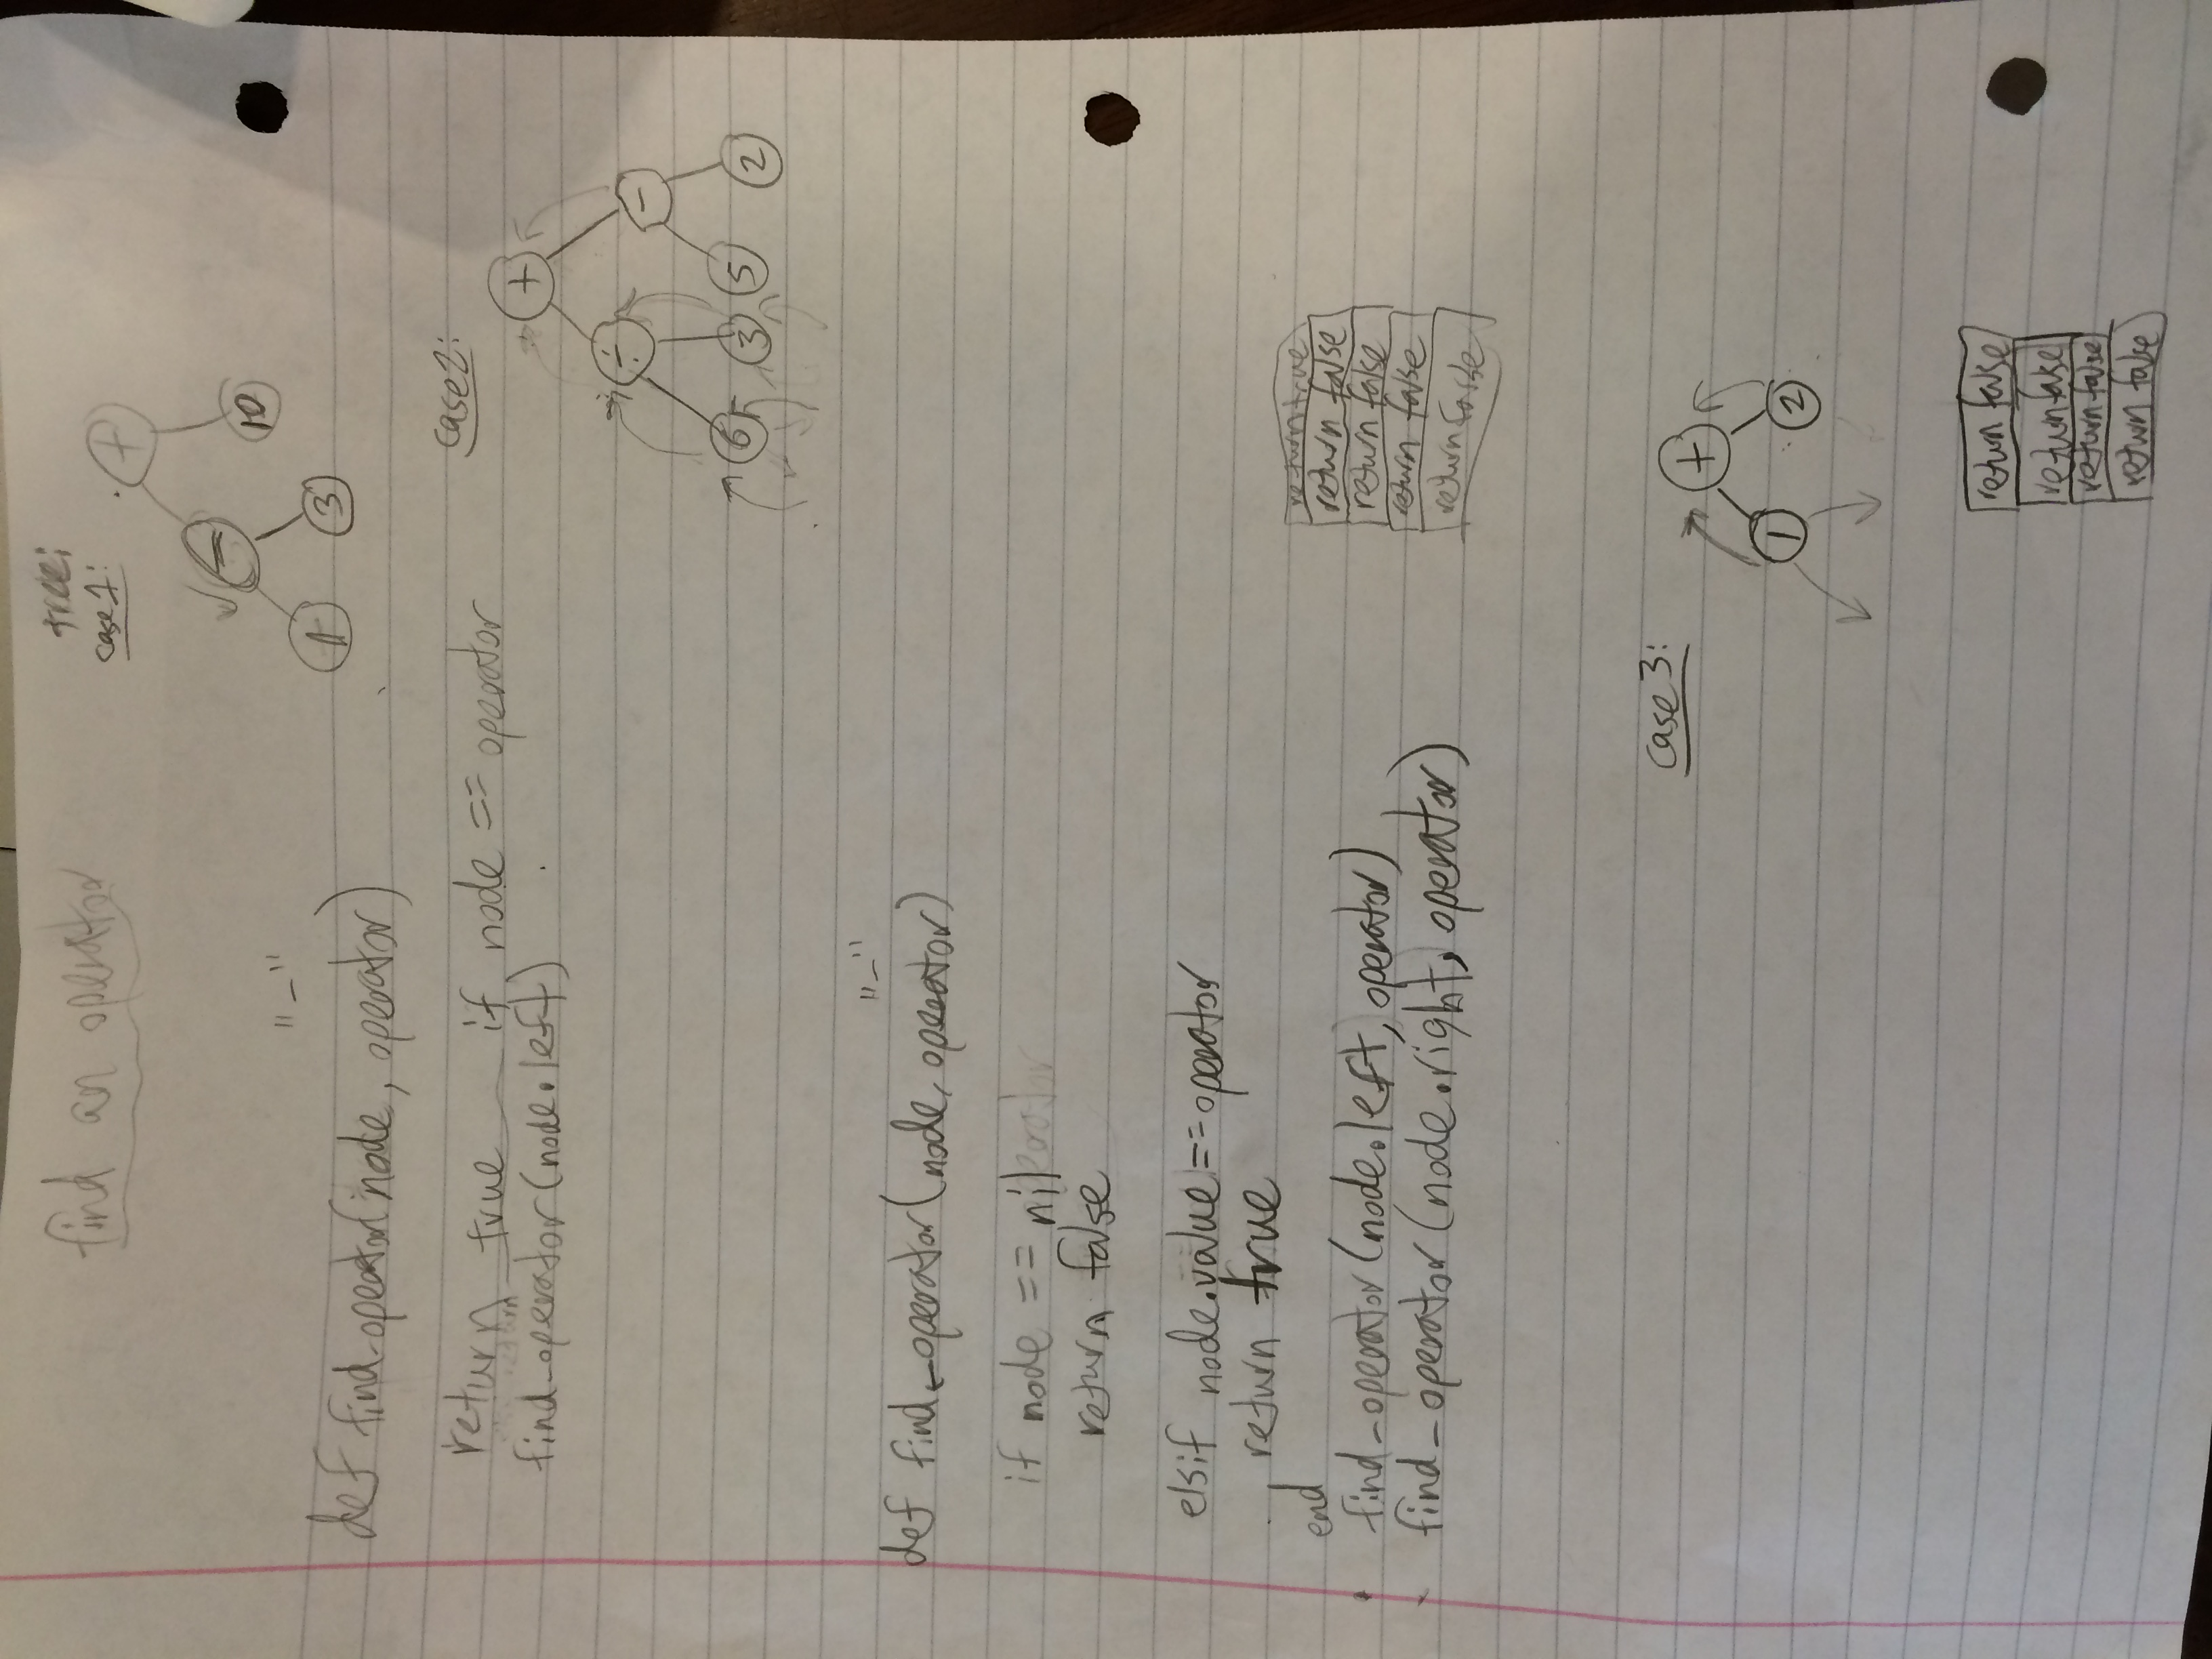 find an operator
tree:
case 1:
+
−
10
1
3
"−"
def find_opeator(node, operator)
return true if node == operator
find_operator(node.left)
case2:
+
÷
−
6
3
5
2
"−"
def find_operator(node, operator)
if node == nil
return false
elsif node.value == operator
return true
end
find_operator(node.left, operator)
find_operator(node.right, operator)
return true
return false
return false
return false
return false
case 3:
+
1
2
return false
return false
return false
return false